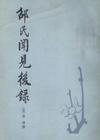 邵氏聞見後錄